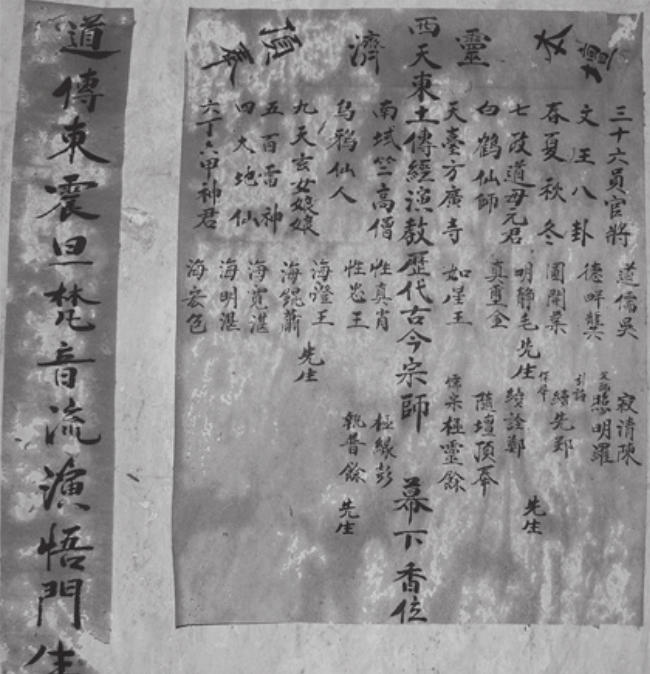 靈濟
頂奉
三十六員官將 道儒吳 寂清陳
文王八卦 德畔龔 照明羅
春夏秋冬 圓開葉 引詣 保舉 續先鄭
七政道母元君 明靜毛 先生 續詮鄭 先生
白鶴仙師 真璽金 隨壇頂奉
天臺方廣寺 如星王 懷宗極靈餘
西天東土傳經演教歷代古今宗師 幕下香位
南域竺高僧 性真肖 極緣彭
烏鴉仙人 性忠王 執普餘 先生
九天玄女娘娘 海澄王 先生
五百雷神 海錕蕭
海寬湛
四大地仙 海明湛
六丁六甲神君 海宏色
道傳東震旦梵音流演悟門生